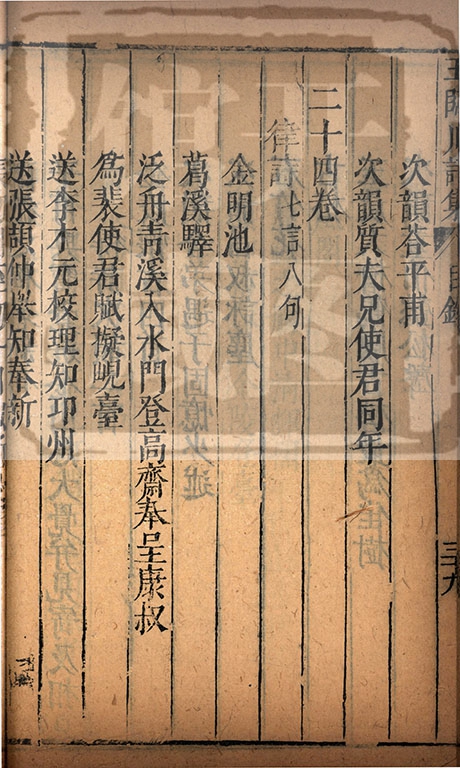 王臨川詩集 目錄 三十九
次韻荅平甫
次韻質夫兄使君同年
二十四卷
律詩七言八句
金明池
葛溪驛
泛舟青溪入水門登高齋奉呈康叔
爲裴使君賦擬峴臺
送李才元校理知邛州
送張頡仲舉知奉新